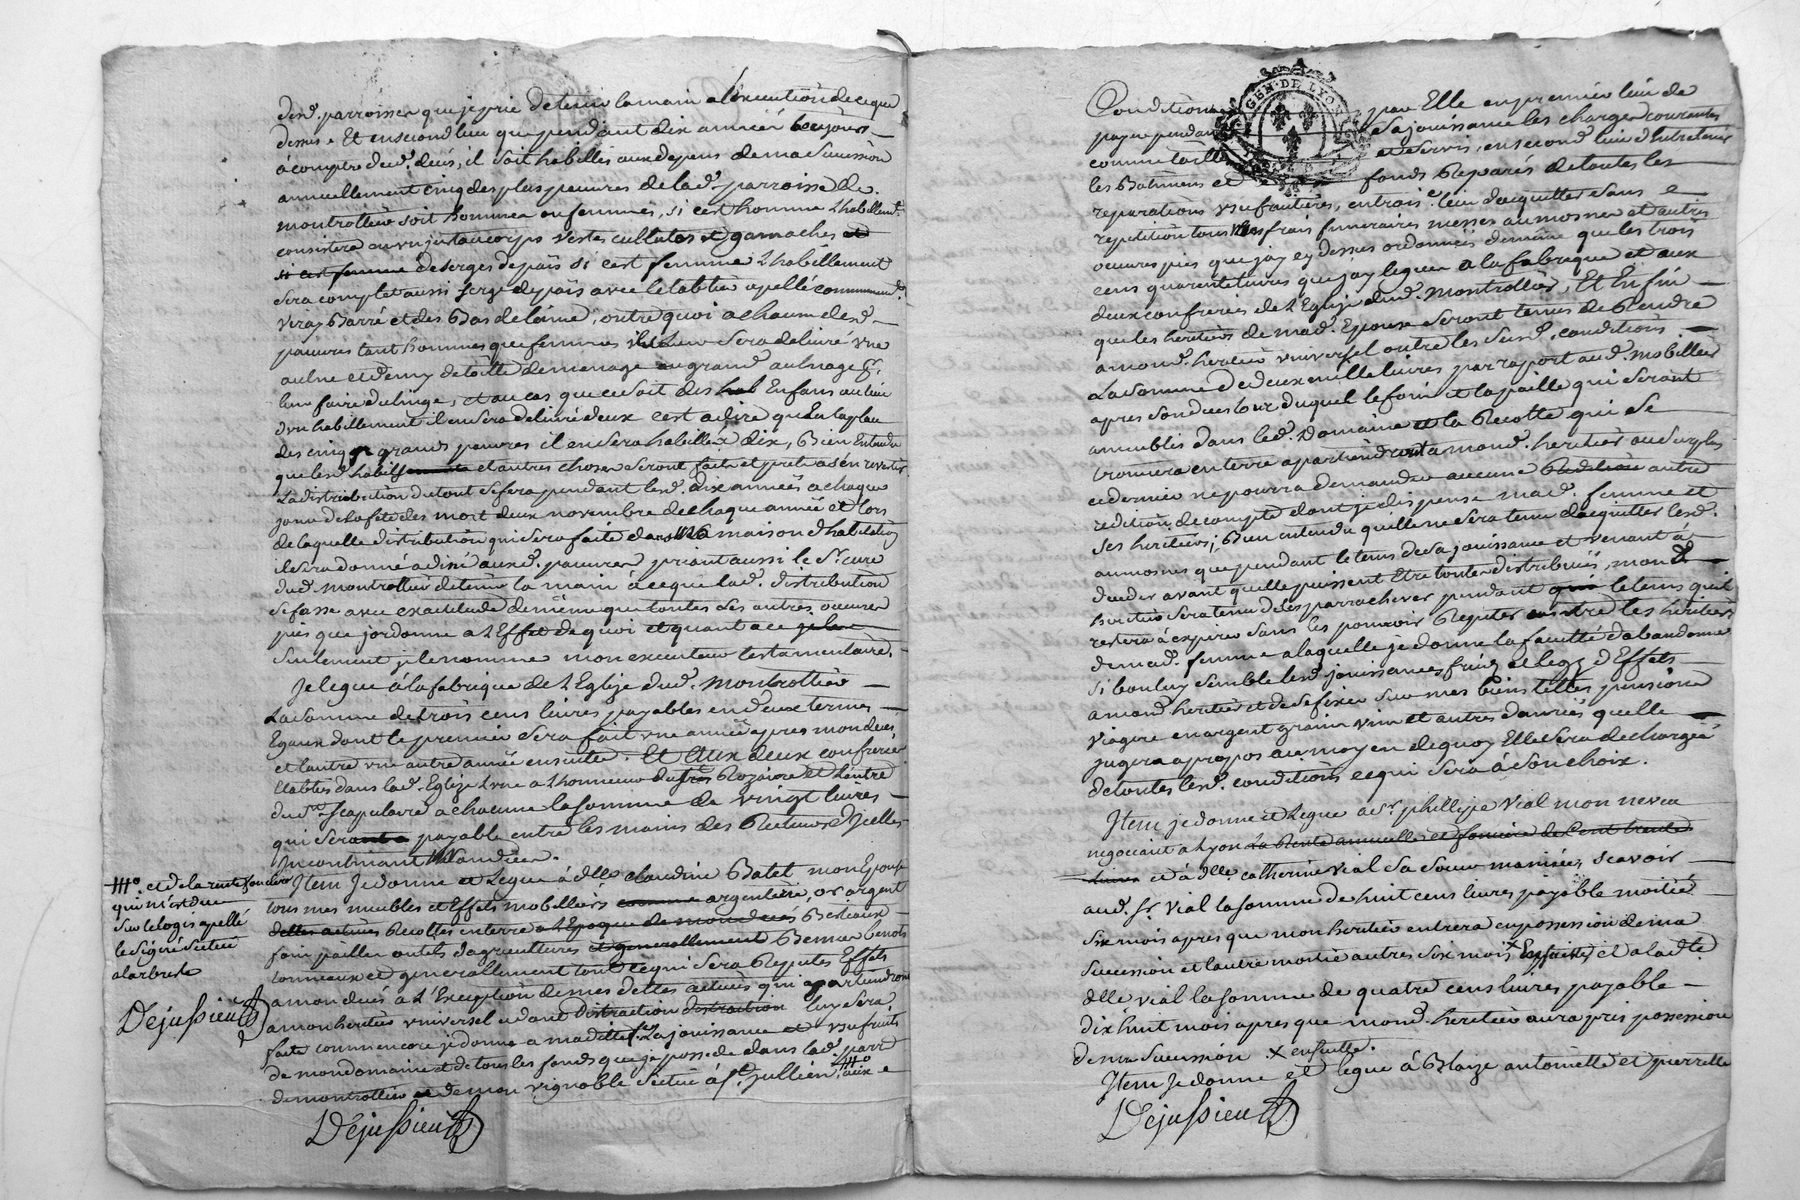 dud. parroisse que je prie detenir la main a l'execution de ceque
dessus. Et ensecond lieu que pendant dix années toujours
à compter dud. decés, il soit habillés aux depens de ma Succession
annuellement cinq des plus pauvres de lad. parroisse de
montrottier soit hommes ou femmes, si c'est homme l'habillemt.
consistera en un justaucorps vestes cullotes et gamaches et
si c'est femme de serges depaïs si c'est femme l'habillement
sera complet aussi serge depaïs avec le tablier apellé communemt.
barré et des bas de laine, outre quoi a chacun desd.
pauvres tant hommes que femmes il sera delivré une
aulne et demy de toille de menage
leur faire du linge, et au cas que ce soit des hab Enfans au lieu
d'un habillement il en sera delivré deux c'est a dire qu'en la place
des cinq grands pauvres il en sera habillés dix, bien entendu
que lesd. et autres choses seront faits et prets a s'en revetir
La distribution du tout se fera pendant lesd. dix années a chaque
jour de la fête des mort deux novembre de chaque année et lors
de laquelle distribution qui sera faite dans ma maison d'habitation
il sera donné a diné auxd. pauvres priant aussi le Sr. curé
dud. montrottier de tenir la main à ceque lad. distribution
se fasse avec exactitude de même que toutes les autres oeuvres
pies que j'ordonne a l'Effet de quoi et quant a ce
seulement je le nomme mon executeur testamentaire.
Je legue à la fabrique de l'Eglize dud. Montrottier
La somme de trois cens livres payables en deux termes
Egaux dont le premier sera fait une année apres mon decés
et l'autre une autre année ensuite. Et aux deux confreries
Etablies dans lad. Eglize l'une a l'honneur du Rozaire et l'autre
du St. Scapulaire a chacune la somme de vingt livres
qui sera payable entre les mains des Recteurs d'Icelles
Incontinant
Item Je donne et legue à dlle claudine Batet mon Epouse
tous mes meubles et Effets mobiliers comme argenterie, or argent
dettes actives Recoltes en terre a l'Epoque de mon decés Bestiaux
foin pailles outils d'agricultures et generallement
tonneaux et generallement tout ce qui sera Reputés Effets
a mon decés a l'Exception de mes dettes actives qui apartiendront
a mon heritier universel et dont distraction distraction luy sera
faite comme encore je donne a madite fe. La jouissance et usufruits
de mon domaine et de tous les fonds que je possede dans lad. parr.
de montrottier et de mon vignoble Scitué à St. Jullien aux
Dejussieu
et de la rente fonciere
qui m'est due
sur le logis apellé
le Signe Scitué
a larbresle
Dejussieu
GEN. DE LYON
Conditions par Elle en premier lieu de
payer pendant sa jouissance les charges courantes
comme taille et servis, en second lieu d'entretenir
les Batimens et fonds Reparés de toutes les
reparations usufruitières, en trois. lieu d'acquitter sans
repetition tous mes frais funeraires messes aumosnes et autres
oeuvres pies que j'ay cy dessus ordonnées de même que les trois
cens quarente livres que j'ay leguer a la fabrique et aux
deux confreries de l'Eglize dud. Montrottier, Et Enfin
que les heritiers de mad. Epouse seront tenus de Rendre
a mond. heritier universel outre les susd. conditions
La somme de deux mille livres par raport aud. mobillier
apres son deces lors duquel le foin et la paille qui seront
ameublis dans led. Domaine et la Recolte qui se
trouvera en terre apartiendront a mond. heritier au surplus
ce dernier ne pourra demander aucune autre
redition de compte dont je dispense mad. femme et
ses heritiers; Bien entendu quelle ne sera tenue d'acquitter lesd.
aumosnes que pendant le tems de sa jouissance et venant à
deceder avant quelle puissent Etre toutes distribuées, mond.
heritier sera tenu de les parrachever pendant le tems qu'il
restera à expirer sans les pouvoir Repeter contre les heritiers
de mad. femme a laquelle je donne la faculté d'abandonner
si bon luy semble lesd. jouissances fruits et legs d'Effets
a mond. heritier et de se fixer sur mes biens telles pension
viagere en argent grain vin et autres danrées quelle
jugera apropos au moyen dequoy Elle sera dechargée
de toutes lesd. conditions ce qui sera à son choix.
Item je donne et legue a Sr. phillipe Vial mon neveu
negociant a Lyon La Rente annuelle et fonciere de Cent trente
livres et à dlle catherine vial sa soeur mariée, scavoir
aud. Sr. Vial la somme de huit cens livres payable moitié
six mois apres que mon heritier entrera en possession de ma
succession et l'autre moitié autres six mois Ensuitte et a lad.
dlle vial la somme de quatre cens livres payable
dix huit mois apres que mond. heritier aura pris possession
de ma succession. x ensuitte.
Item je donne et legue à Blaize antoinette et pierrette
Dejussieu